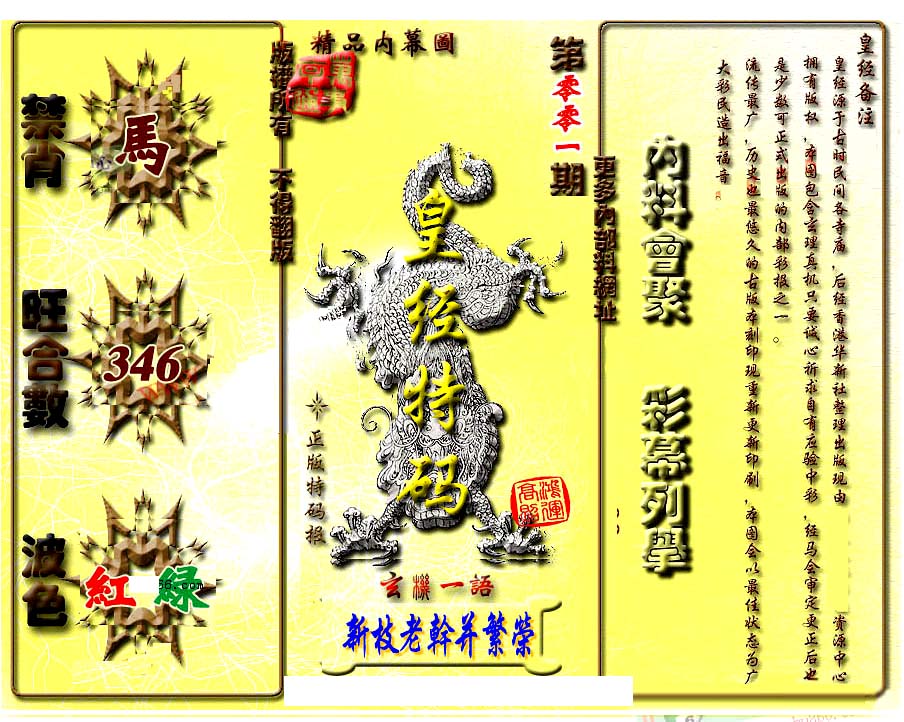 精品内幕圖
版權所有 不得翻版
第零零一期
更多內部料網址
禁肖
馬
旺合數
346
波色
紅 綠
皇经特码
正版特码招
鴻運高照
玄機一語
新枝老幹并繁榮
內料會聚 彩幕列舉
皇经备注
皇经源于古时民间各寺庙,后经香港华新社整理出版现由 资源中心
拥有版权,本图包含玄理真机只要诚心祈求自有应验中彩,经马会审定更正后也
是少数可正式出版的内部彩报之一。
流传最广,历史也最悠久的古版本刻印现重新更新印刷,本图会以最佳状态为广
大彩民造出福音